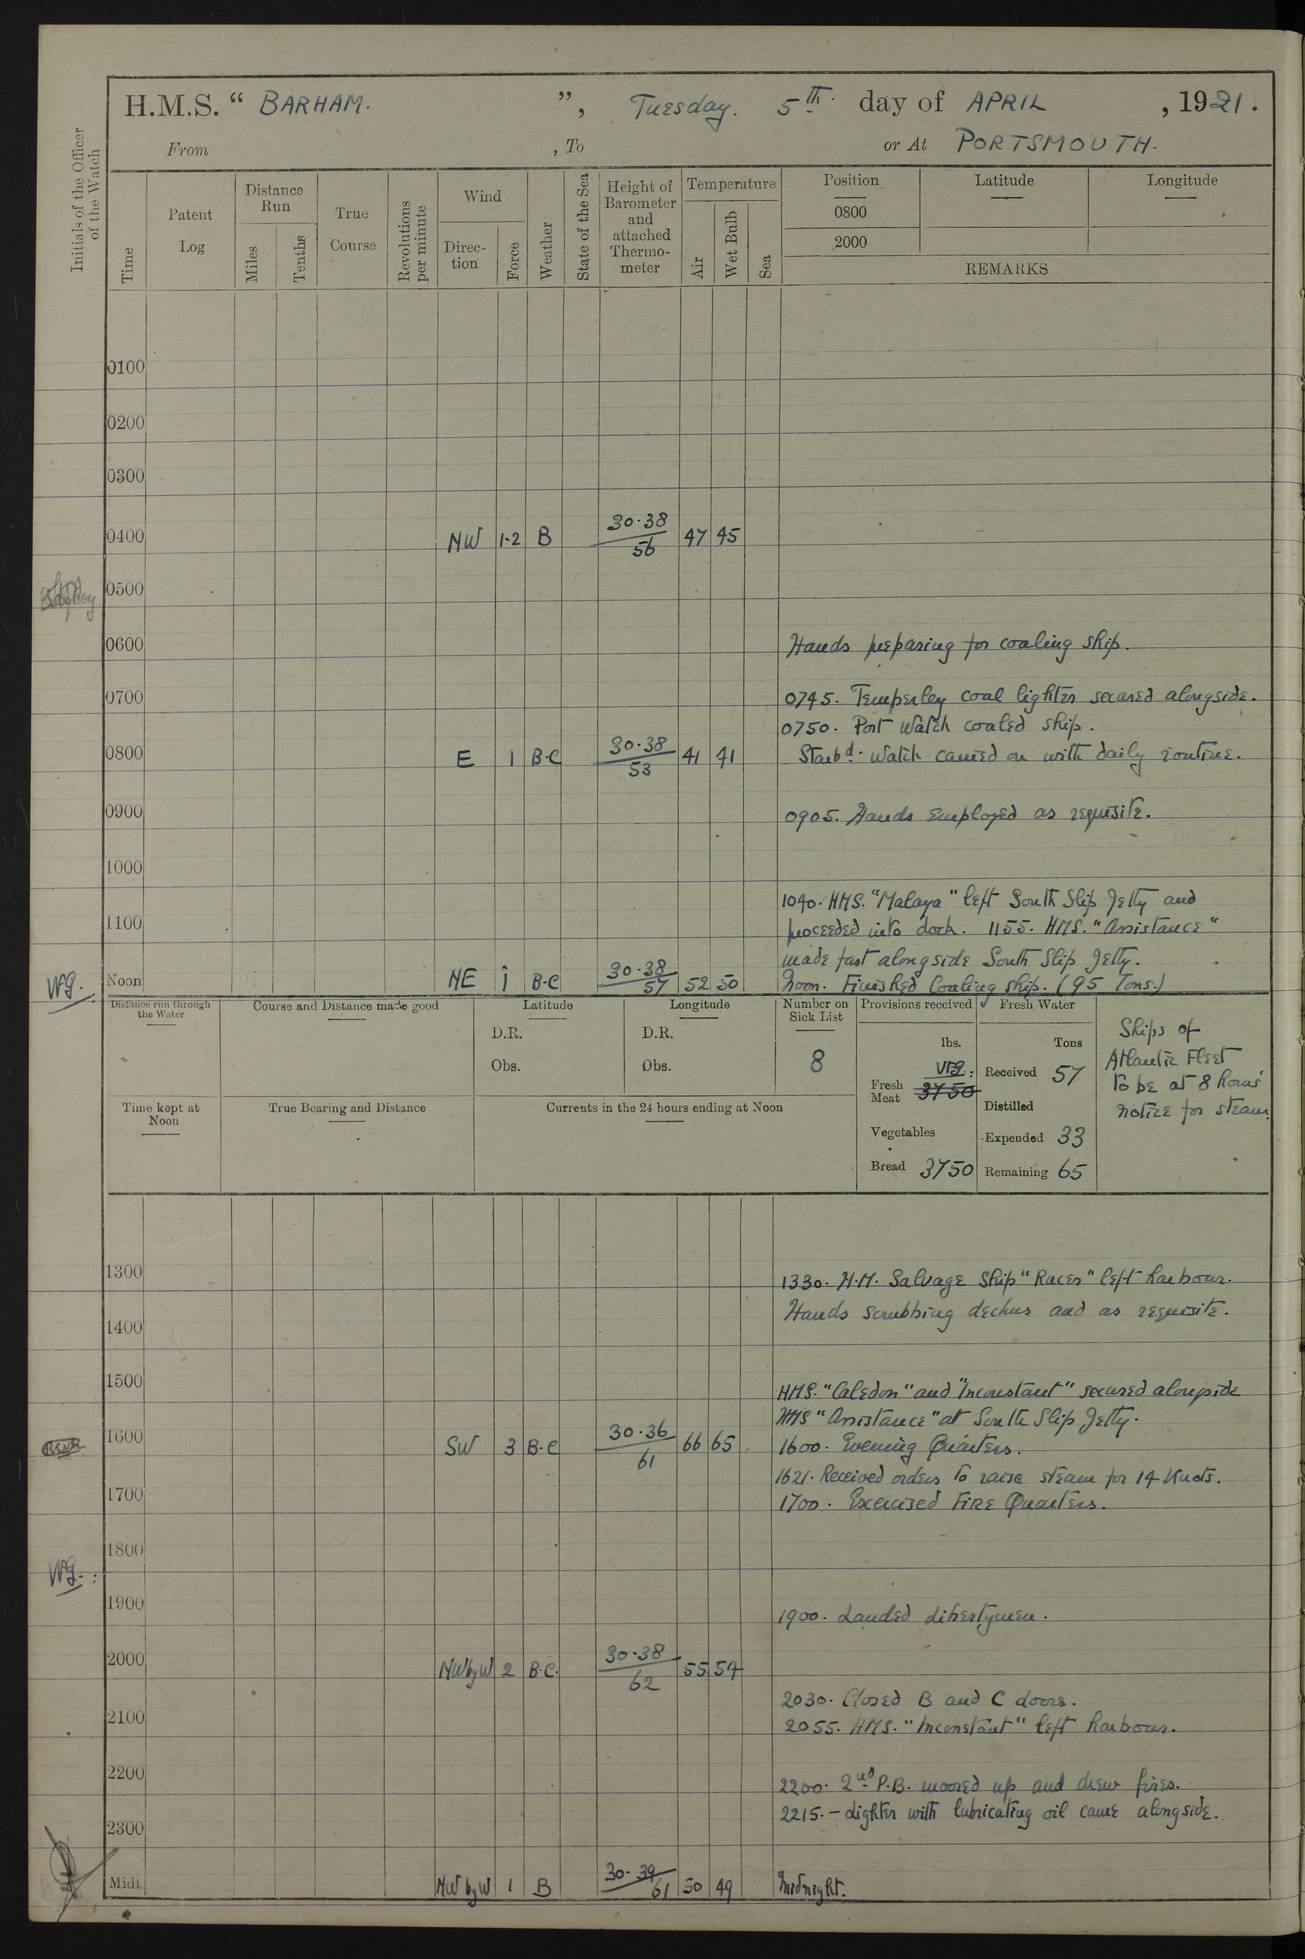 H.M.S. “ BARHAM. ”, Tuesday. 5th. day of APRIL , 1921.
From , To or At PORTSMOUTH.
Initials of the Officer of the Watch
Time
Patent Log
Distance Run
Miles
Tenths
True Course
Revolutions per minute
Wind
Direc-tion
Force
Weather
State of the Sea
Height of Barometer and attached Thermo-meter
Temperature
Air
Wet Bulb
Sea
Position Latitude Longitude
0800
2000
REMARKS
0100
0200
0300
0400 NW 1-2 B 30·38 56 47 45
0500
0600 Hands preparing for coaling ship.
0700 0745. Temperley coal lighter secured alongside.
0750. Port Watch coaled ship.
0800 E 1 B·C 30·38 53 41 41 Starbd. Watch carried on with daily routine.
0900 0905. Hands Employed as requisite.
1000
1040. HMS. "Malaya" left South Slip Jetty and
1100 proceeded into dock. 1155. HMS. "Assistance"
made fast alongside South Slip Jetty.
WG. Noon NE 1 B·C 30·38 57 52 50 Noon. Finished Coaling ship. (95 Tons.)
Distance run through the Water
Course and Distance made good
Latitude
D.R.
Obs.
Longitude
D.R.
Obs.
Number on Sick List
8
Provisions received
lbs.
Fresh Meat 3750
Vegetables
Bread 3750
Fresh Water
Tons
Received 57
Distilled
Expended 33
Remaining 65
Ships of
Atlantic Fleet
to be at 8 hours'
notice for steam.
Time kept at Noon
True Bearing and Distance
Currents in the 24 hours ending at Noon
1300 1330. H.M. Salvage Ship "Racer" left harbour.
1400 Hands scrubbing deckus and as requisite.
1500 HMS. "Caledon" and "Inconstant" secured alongside
HMS "Assistance" at South Slip Jetty.
1600 SW 3 B·C 30·36 61 66 65 1600. Evening Quarters.
1621. Received orders to raise steam for 14 Knots.
1700 1700. Exercised FIRE Quarters.
1800
WG.
1900 1900. Landed libertymen.
2000 NWbyW 2 B·C. 30·38 62 55 54
2030. Closed B and C doors.
2100 2055. HMS. "Inconstant" left harbour.
2200 2200. 2nd P.B. moored up and drew fires.
2215.- Lighter with lubricating oil came alongside.
2300
Midt NWbyW 1 B 30·39 61 50 49 Midnight.